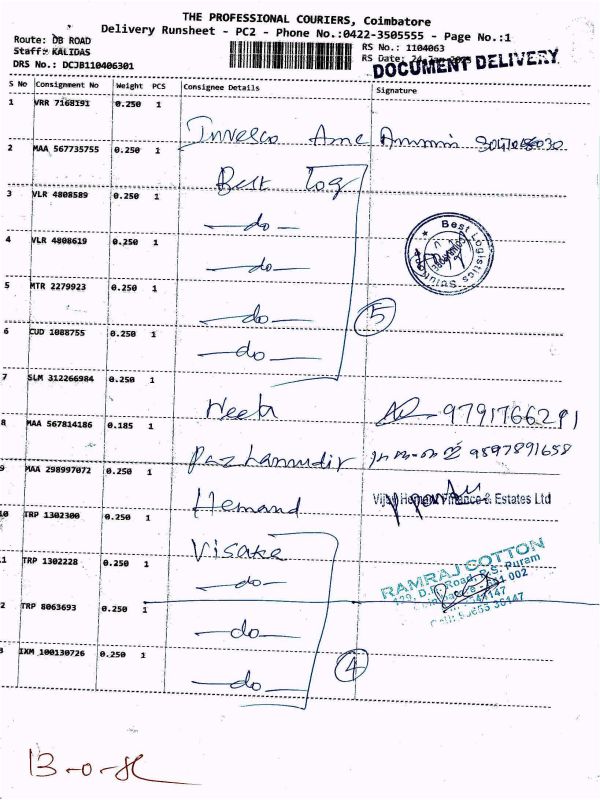 THE PROFESSIONAL COURIERS, Coimbatore
Delivery Runsheet - PC2 - Phone No.:0422-3505555 - Page No.:1
Route: DB ROAD
Staff: KALIDAS
DRS No.: DCJB110406301
RS No.: 1104063
RS Date: 24
DOCUMENT DELIVERY
S No Consignment No Weight PCS Consignee Details Signature
1 VRR 7168191 0.250 1
2 MAA 567735755 0.250 1 Best Log
3 VLR 4808589 0.250 1 —do—
4 VLR 4808619 0.250 1 —do—
5 MTR 2279923 0.250 1 —do—
6 CUD 1088755 0.250 1 —do—
5
Best Logistics
7 SLM 312266984 0.250 1 9791766291
8 MAA 567814186 0.185 1 Pazhamudir 9597891658
9 MAA 298997072 0.250 1 Hemand Vijay Hemant Finance & Estates Ltd
10 TRP 1302300 0.250 1 Visaka
11 TRP 1302228 0.250 1 —do—
12 TRP 8063693 0.250 1 —do—
13 IXM 100130726 0.250 1 —do—
4
RAMRAJ COTTON
D.B. Road, R.S. Puram
13-0-